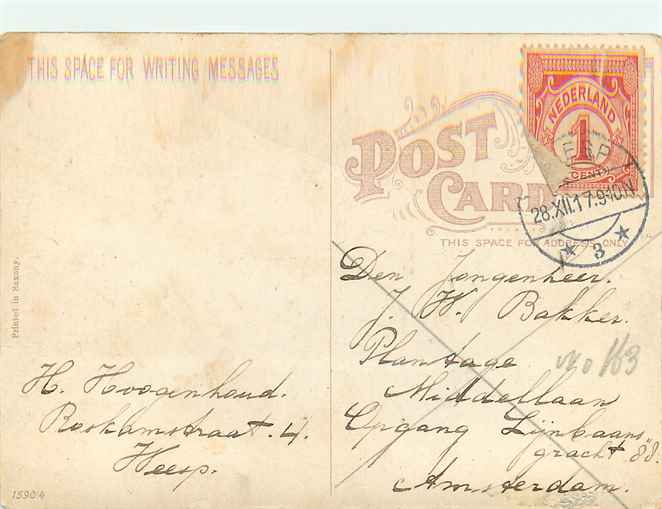 THIS SPACE FOR WRITING MESSAGES
POST
CARD
THIS SPACE FOR ADDRESS ONLY
NEDERLAND
1
CENT
ESP
28.XII.17.9-10.N
3
Printed in Saxony.
H. Hoogenhoud.
Roskamstraat. 4.
Weesp.
15904
Den Jongenheer.
J. W. Bakker.
Plantage
No 163
Middellaan
Opgang Lijnbaans
gracht 88.
Amsterdam.